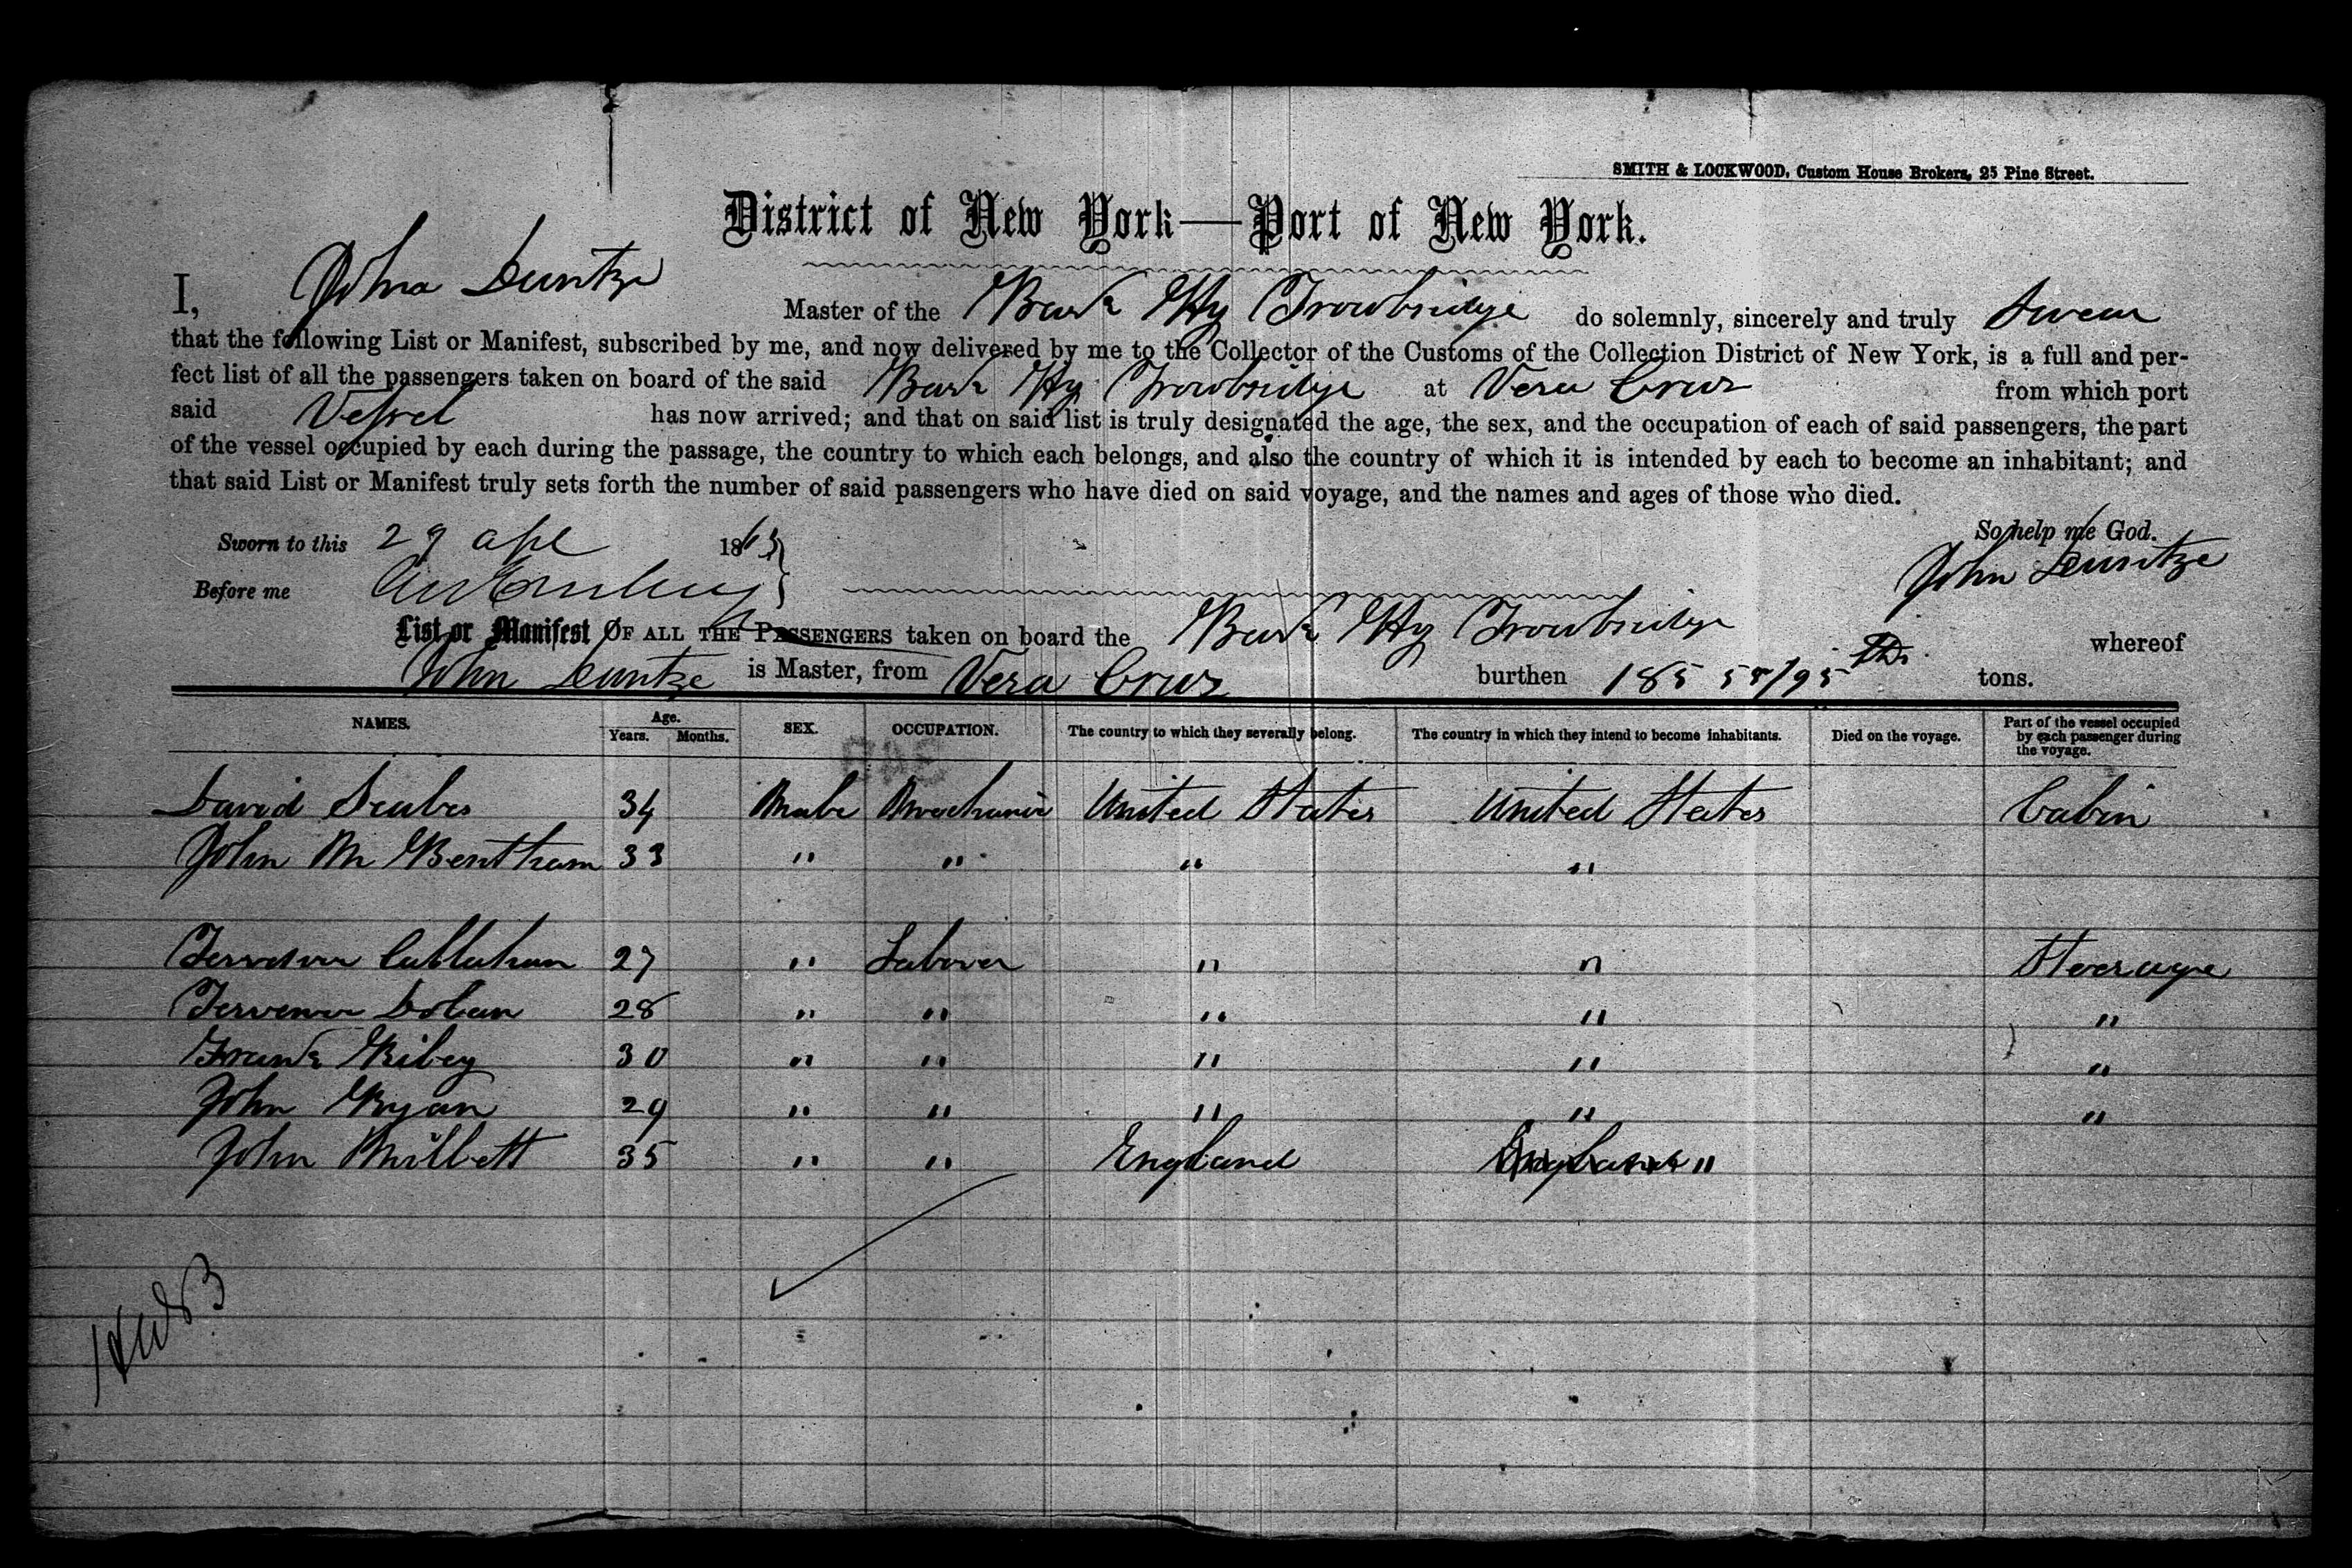 SMITH & LOCKWOOD, Custom House Brokers, 25 Pine Street.
District of New York—Port of New York.
I, John Luntze Master of the Bark Hy Trowbridge do solemnly, sincerely and truly Swear
that the following List or Manifest, subscribed by me, and now delivered by me to the Collector of the Customs of the Collection District of New York, is a full and per-
fect list of all the passengers taken on board of the said Bark Hy Trowbridge at Vera Cruz from which port
said Vessel has now arrived; and that on said list is truly designated the age, the sex, and the occupation of each of said passengers, the part
of the vessel occupied by each during the passage, the country to which each belongs, and also the country of which it is intended by each to become an inhabitant; and
that said List or Manifest truly sets forth the number of said passengers who have died on said voyage, and the names and ages of those who died.
Sworn to this 29 Apl 1863 So help me God.
Before me John Luntze
List or Manifest OF ALL THE PASSENGERS taken on board the Bark Hy Trowbridge whereof
John Luntze is Master, from Vera Cruz burthen 185 tons.
NAMES. Age. Years. Months. SEX. OCCUPATION. The country to which they severally belong. The country in which they intend to become inhabitants. Died on the voyage. Part of the vessel occupied by each passenger during the voyage.
David 34 Male Mechanic United States United States Cabin
John M Bentham 33 " " " "
Callahan 27 " Laborer " " Steerage
Dolan 28 " " " " "
Frank Riley 30 " " " " "
John Ryan 29 " " " " "
John Millett 35 " " England England "